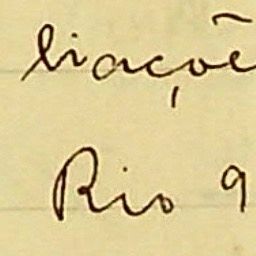 liaçõe
Rio 9